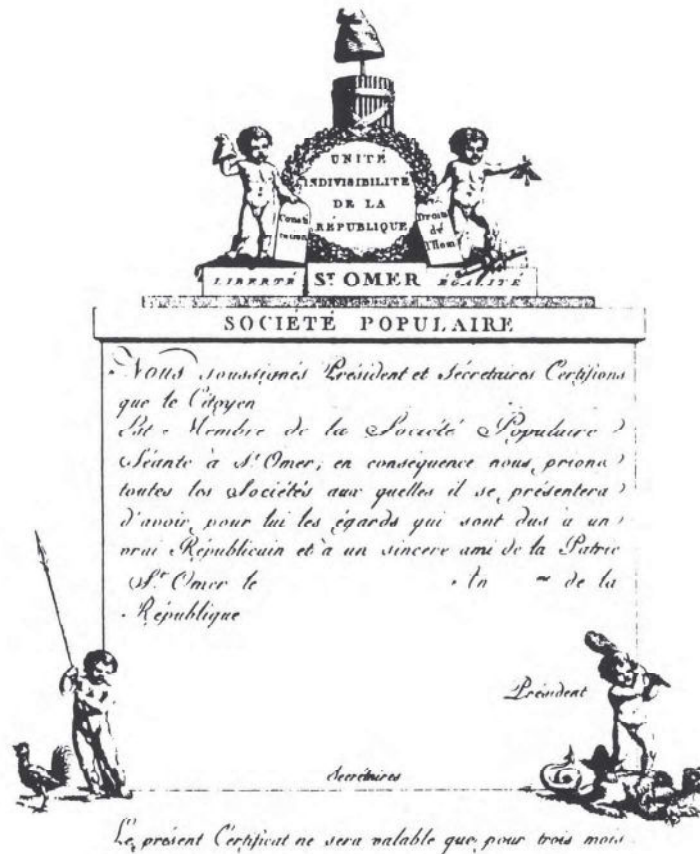 UNITÉ
INDIVISIBILITÉ
DE LA
RÉPUBLIQUE
Consti
tution
Droits
de
l'Hom
LIBERTÉ ST OMER ÉGALITÉ
SOCIÉTÉ POPULAIRE
Nous soussignés Président et Sécrétaires Certifions
que le Citoyen
Est Membre de la Société Populaire
Séante à St Omer; en conséquence nous prions
toutes les Sociétés aux quelles il se présentera
d'avoir pour lui les égards qui sont dus à un
vrai Républicain et à un sincere ami de la Patrie
St Omer le An me de la
République
Président
Secrétaires
Le présent Certificat ne sera valable que pour trois mois